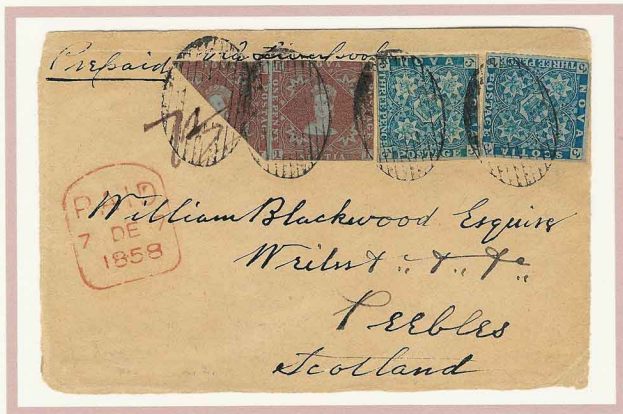 Prepaid via Liverpool
NOVA
SCOTIA
THREE PENCE
POSTAGE
NOVA
SCOTIA
THREE PENCE
POSTAGE
PAID
7 DE 7
1858
William Blackwood Esquire
Peebles
Scotland